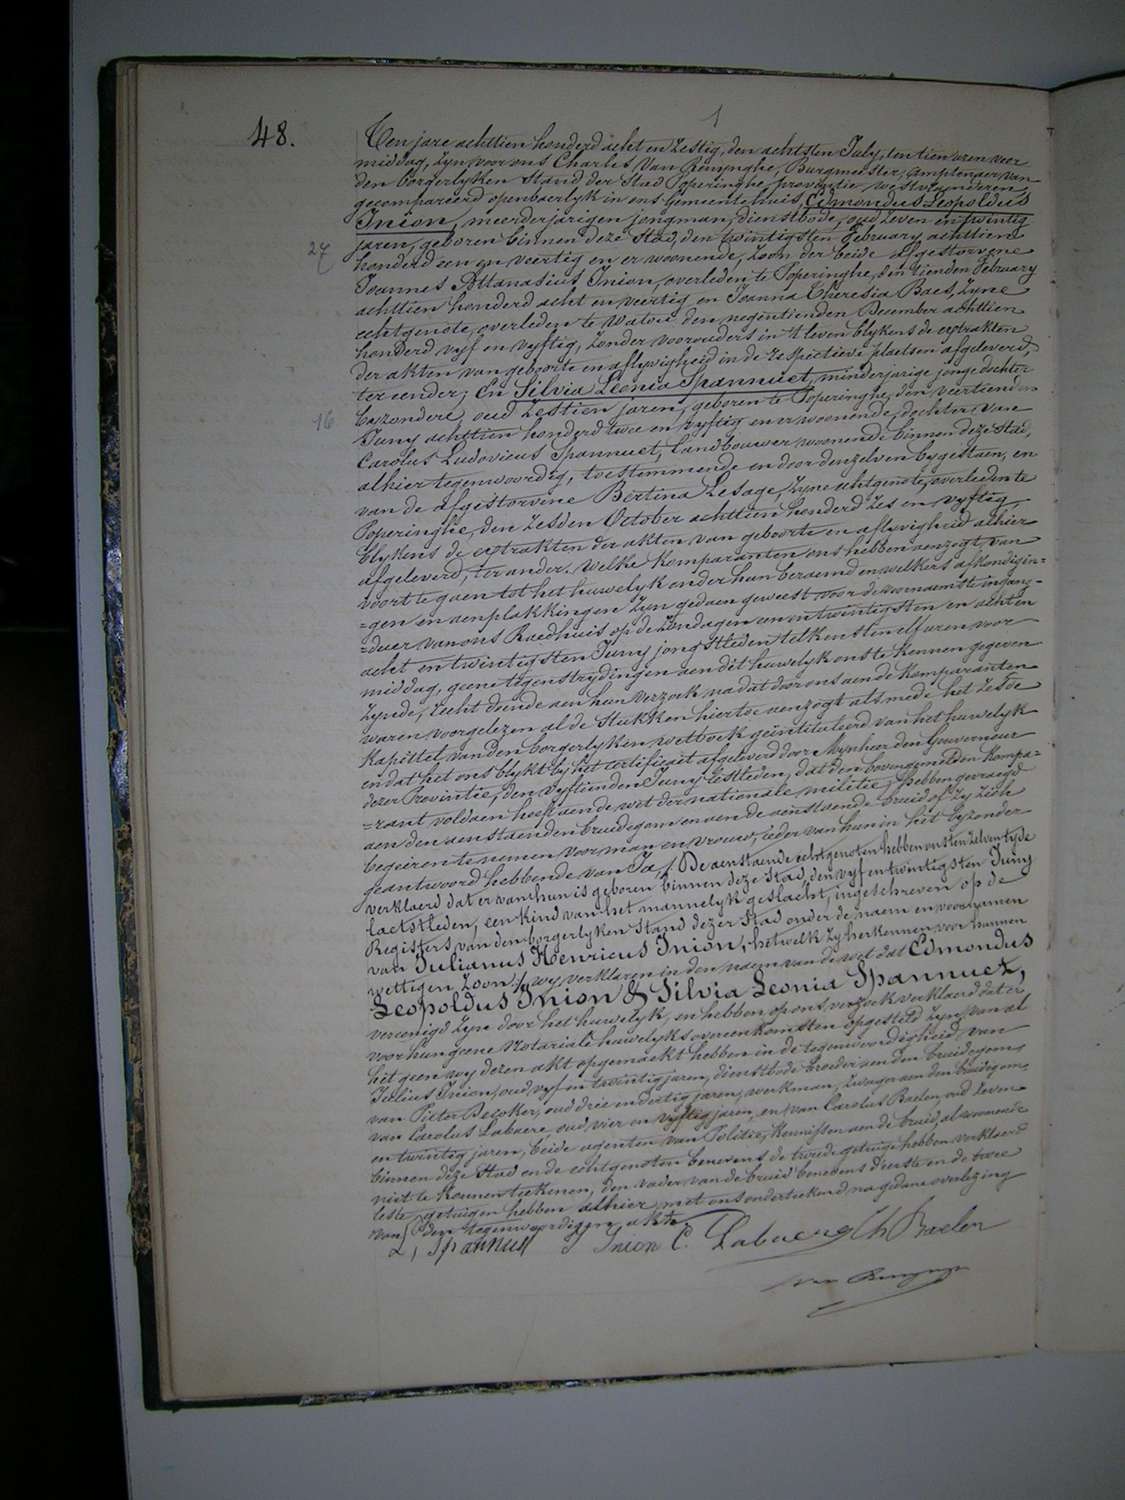 1
48.
Ten jare achttien honderd acht en zestig, den achtsten July, ten tien uren voor
middag, zyn voor ons Charles Van Renynghe, Burgmeester, amptenaer van
den borgerlyken Stand der Stad Poperinghe, provintie westvlaenderen,
gecompareerd openbaerlyk in ons Gemeentehuis, Edmondus Leopoldus
Inion, meerderjarigen jongman, dienstbode, oud zeven en twintig
27
jaren, geboren binnen deze Stad, den twintigsten february achttien
honderd een en veertig en er woonende, zoon der beide afgestorvene
Joannes Attanasius Inion, overleden te Poperinghe, den tienden february
achttien honderd acht en veertig en Joanna Theresia Baes, zyne
echtgenote, overleden te Watou den negentienden December achttien
honderd vyf en vyftig, zonder voorouders in 't leven blykens de extrakten
der akten van geboorte en aflyvigheid in de respectieve plaetsen afgeleverd,
ter eender; En Silvia Leonia Spannuet, minderjarige jonge dochter
16
byzondere, oud zestien jaren, geboren te Poperinghe, den veertienden
Juny achttien honderd twee en vyftig en er woonende, dochter van
Carolus Ludovicus Spannuet, landbouwer woonende binnen deze Stad,
alhier tegenwoordig, toestemmende en door denzelven bygestaen, en
van de afgestorvene Bertina Lesage, zyne echtgenote, overleden te
Poperinghe, den zesden October achttien honderd zes en vyftig,
blykens de extrakten der akten van geboorte en aflyvigheid alhier
afgeleverd, ter ander. Welke komparanten ons hebben aenzogt van
voort te gaen tot het huwelyk onder hun beraemd en welkers afkondigin-
=gen en aenplakkingen zyn gedaen geweest voor de voornaemste ingang-
=duer van ons Raedhuis op de zondagen een en twintigsten en achten
acht en twintigsten Juny jongstleden telkens ten elf uren voor
middag, geene tegenstrydingen aen dit huwelyk ons te kennen gegeven
zynde, recht doende aen hun verzoek, na dat door ons aen de komparanten
waren voorgelezen al de stukken hiertoe aenzogt alsmede het zesde
kapittel van den borgerlyken wetboek geïnstitueerd van het huwelyk
en dat het ons blykt by het certificaet afgeleverd door Mynheer den Gouverneur
dezer Provintie, den vyftienden Juny lestleden, dat den bovengemelden kompa-
=rant voldaen heeft aen de wet der nationale militie, hebben gevraegd
aen den aenstaenden bruidegom en aen de aenstaende bruid of zy zich
begeiren te nemen voor man en vrouw, ieder van hun in 't byzonder
geantwoord hebbende van Ja / De aenstaende echtgenoten hebben ons ten zelven tyde
verklaerd dat er van hun is geboren binnen deze Stad, den vyf en twintigsten Juny
laetstleden, een kind van het mannelyk geslacht, ingeschreven op de
Registers van den borgerlyken Stand dezer Stad onder de naem en voornamen
van Julianus Henricus Inion, hetwelk zy herkennen voor hunnen
wettigen zoon / wy verklaren in den naem van de wet dat Edmondus
Leopoldus Inion & Silvia Leonia Spannuet,
vereenigd zyn door het huwelyk, en hebben op ons verzoek verklaerd dat er
voor hun geene Notariale huwelyksovereenkomsten opgesteld zyn, van al
het geen wy dezen akt opgemaekt hebben in de tegenwoordigheid, van
Julius Inion, oud vyf en twintig jaren, dienstbode broeder aen den bruidegom,
van Pieter Becoker, oud drie en dertig jaren, werkman, zwager aen den bruidegom,
van Carolus Labaere oud, vier en vyftig jaren, en van Carolus Baelen oud zeven
en twintig jaren, beide agenten van Politie, kennissen aen de bruid, al woonende
binnen deze Stad en de echtgenoten benevens de tweede getuige hebben verklaerd
niet te kunnen teekenen, den vader van de bruid benevens d'eerste en de twee
leste getuigen hebben alhier met ons onderteekend na gedane voorlezing
van den tegenwoordigen akte
L, Spannuet J Inion C. Labaere Ch Baelen
Van Renynghe